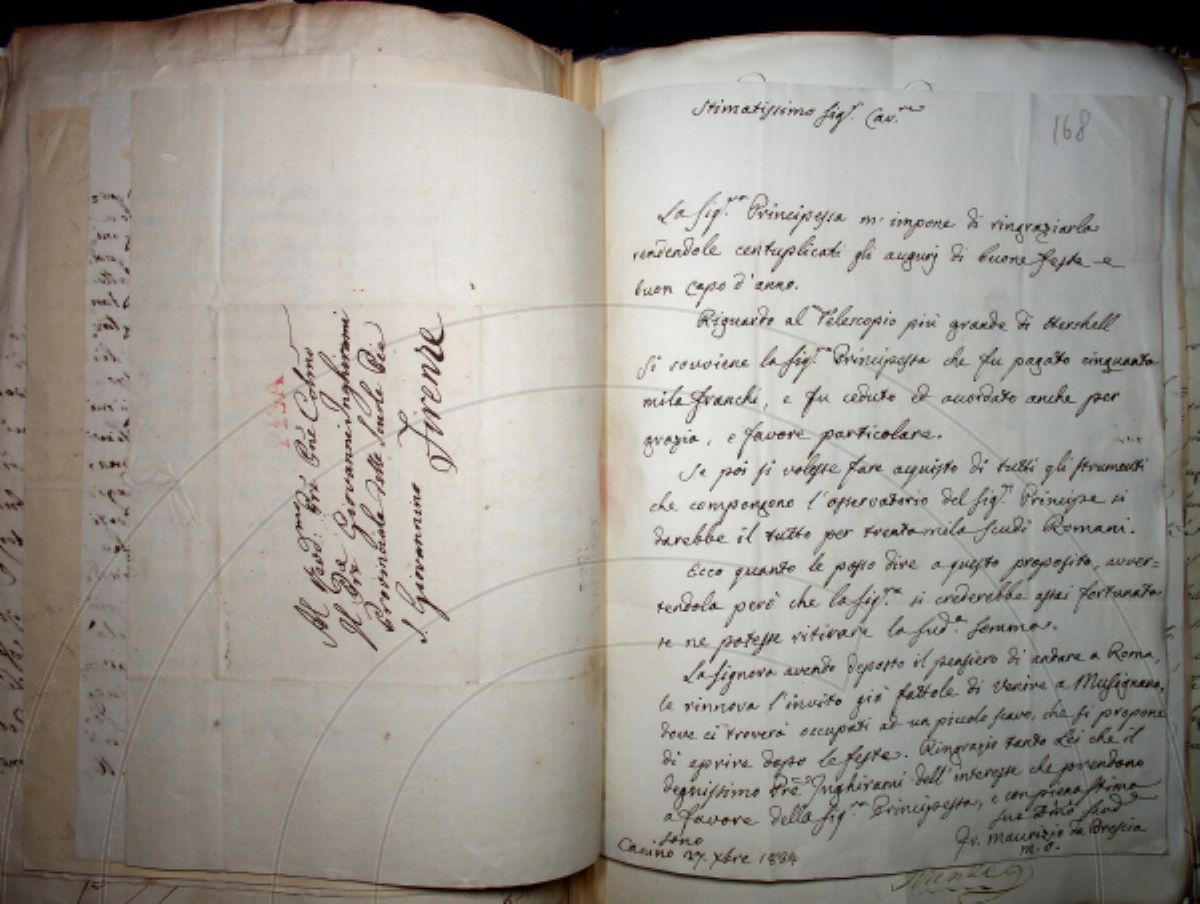 Al Rev.d
Il Pre Giovanni Inghirami
Provinciale delle Scuole Pie
S. Giovannino
Firenze
168
Stimatissimo Sig.r Cav.re
La Sig.ra Principessa m'impone di ringraziarla
rendendole centuplicati gli augurj di buone feste e
buon capo d'anno.
Riguardo al Telescopio più grande di Herschell
si sovviene la Sig.ra Principessa che fu pagato cinquanta
mila franchi, e fu ceduto ed accordato anche per
grazia, e favore particolare.
Se poi si volesse fare acquisto di tutti gli strumenti
che compongono l'osservatorio del Sig.r Principe si
darebbe il tutto per trentamila scudi Romani.
Ecco quanto le posso dire a questo proposito, avver-
tendola però che la Sig.ra si crederebbe assai fortunata
se ne potesse ritirare la sud.a somma.
La Signora avendo deposto il pensiero di andare a Roma,
le rinnova l'invito già fattole di venire a Musignano,
dove ci troverà occupati ad un piccolo scavo, che si propone
di aprire dopo le feste. Ringrazio tanto Lei che il
degnissimo Pre Inghirami dell'interesse che prendono
a favore della Sig.ra Principessa, e con piena stima
sono
Fr. Maurizio da Brescia
m.o.
Canino 27. Xbre 1834